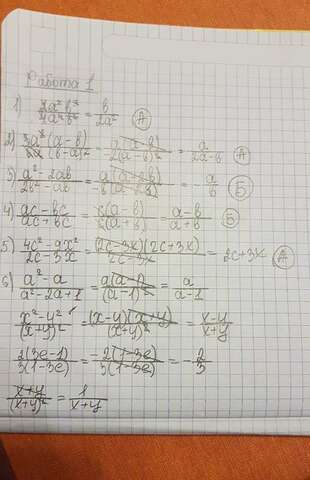 Работа 1
1) 2a²b³/4a⁴b² = b/2a² (А)
2) 3a²(a-b)/(b-a)² = a(a-b)/2(a-b)² = a/2a-b (А)
3) a²-2ab/2b²-ab = a(a-2b)/-b(a-2b) = -a/b (Б)
4) ac-bc/ac+bc = c(a-b)/c(a+b) = a-b/a+b (Б)
5) 4c²-9x²/2c-3x = (2c-3x)(2c+3x)/2c-3x = 2c+3x (А)
6) a²-a/a²-2a+1 = a(a-1)/(a-1)² = a/a-1
x²-y²/(x+y)² = (x-y)(x+y)/(x+y)² = x-y/x+y
2(3e-1)/3(1-3e) = -2(1-3e)/3(1-3e) = -2/3
x+y/(x+y)² = 1/x+y